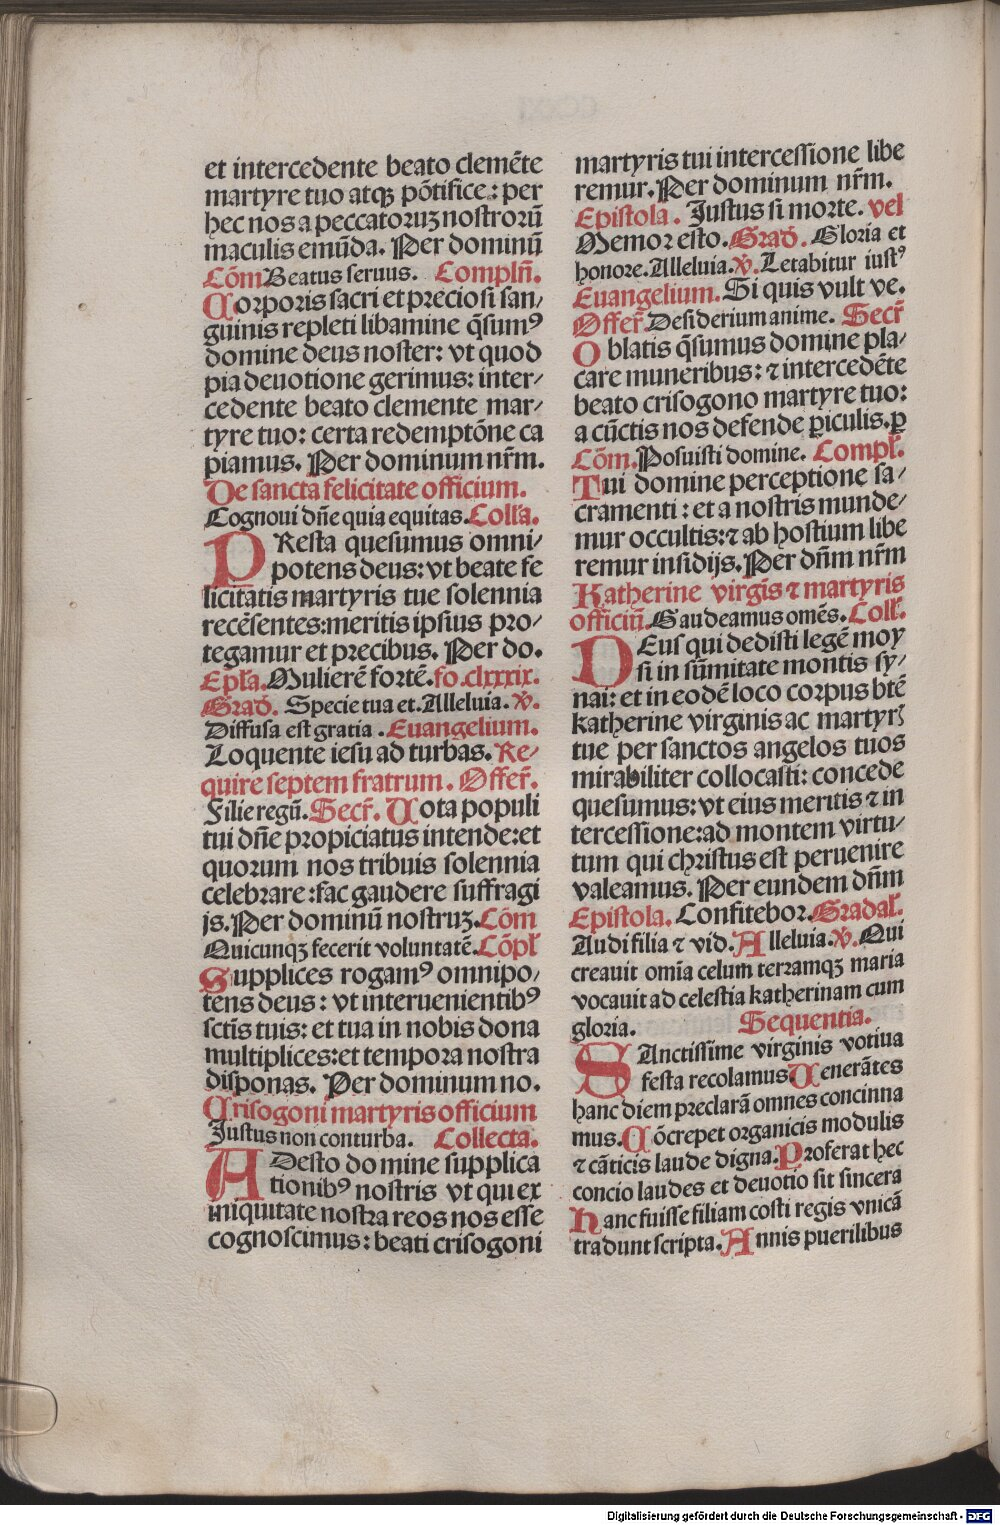 et intercedente beato clemēte
martyre tuo atqꝫ pōtifice: per
hec nos a peccatoruꝫ nostrorū
maculis emūda. Per dominū
Cōm Beatus seruus. Complñ.
Corporis sacri et preciosi san-
guinis repleti libamine q̄sumꝰ
domine deus noster: vt quod
pia deuotione gerimus: inter-
cedente beato clemente mar-
tyre tuo: certa redemptōne ca
piamus. Per dominum nr̄m.
De sancta felicitate officium.
Cognoui dñe quia equitas. Coll̄a.
PResta quesumus omni-
potens deus: vt beate fe
licitatis martyris tue solennia
recēsentes: meritis ipsius pro-
tegamur et precibus. Per do.
Ep̄la. Mulierē fortē. fo. clxxxix.
Grad̄. Specie tua et. Alleluia. v̄.
Diffusa est gratia. Euangelium.
Loquente iesu ad turbas. Re-
quire septem fratrum. Offer̄.
Filie regū. Secr̄. Uota populi
tui dñe propiciatus intende: et
quorum nos tribuis solennia
celebrare: fac gaudere suffragi
js. Per dominū nostruꝫ. Cōm
Quicunqꝫ fecerit voluntatē. Cōpl̄
Supplices rogamꝰ omnipo-
tens deus: vt interuenientibꝰ
sctīs tuis: et tua in nobis dona
multiplices: et tempora nostra
disponas. Per dominum no.
Crisogoni martyris officium
Justus non conturba. Collecta.
ADesto domine supplica
tionibꝰ nostris vt qui ex
iniquitate nostra reos nos esse
cognoscimus: beati crisogoni
martyris tui intercessione libe
remur. Per dominum nr̄m.
Epistola. Justus si morte. vel
Memor esto. Grad̄. Gloria et
honore. Alleluia. v̄. Letabitur iustꝰ
Euangelium. Si quis vult ve.
Offer̄. Desiderium anime. Secr̄
Oblatis q̄sumus domine pla-
care muneribus: ⁊ intercedēte
beato crisogono martyre tuo:
a cūctis nos defende ꝑiculis. ꝑ
Cōm. Posuisti domine. Compl̄.
Tui domine perceptione sa-
cramenti: et a nostris munde-
mur occultis: ⁊ ab hostium libe
remur insidijs. Per dñm nr̄m
Katherine virgīs ⁊ martyris
officiū. Gaudeamus omēs. Coll̄.
DEus qui dedisti legē moy
si in sūmitate montis sy-
nai: et in eodē loco corpus btē
katherine virginis ac martyrꝭ
tue per sanctos angelos tuos
mirabiliter collocasti: concede
quesumus: vt eius meritis ⁊ in
tercessione: ad montem virtu-
tum qui christus est peruenire
valeamus. Per eundem dñm
Epistola. Confitebor. Gradal̄.
Audi filia ⁊ vid. Alleluia. v̄. Qui
creauit omīa celum terramqꝫ maria
vocauit ad celestia katherinam cum
gloria. Sequentia.
SAnctissime virginis votiua
festa recolamus. Uenerātes
hanc diem preclarā omnes concinna
mus. Cōcrepet organicis modulis
⁊ cāticis laude digna. Proferat hec
concio laudes et deuotio sit sincera
hanc fuisse filiam costi regis vnicā
tradunt scripta. Annis puerilibus
Digitalisierung gefördert durch die Deutsche Forschungsgemeinschaft - DFG